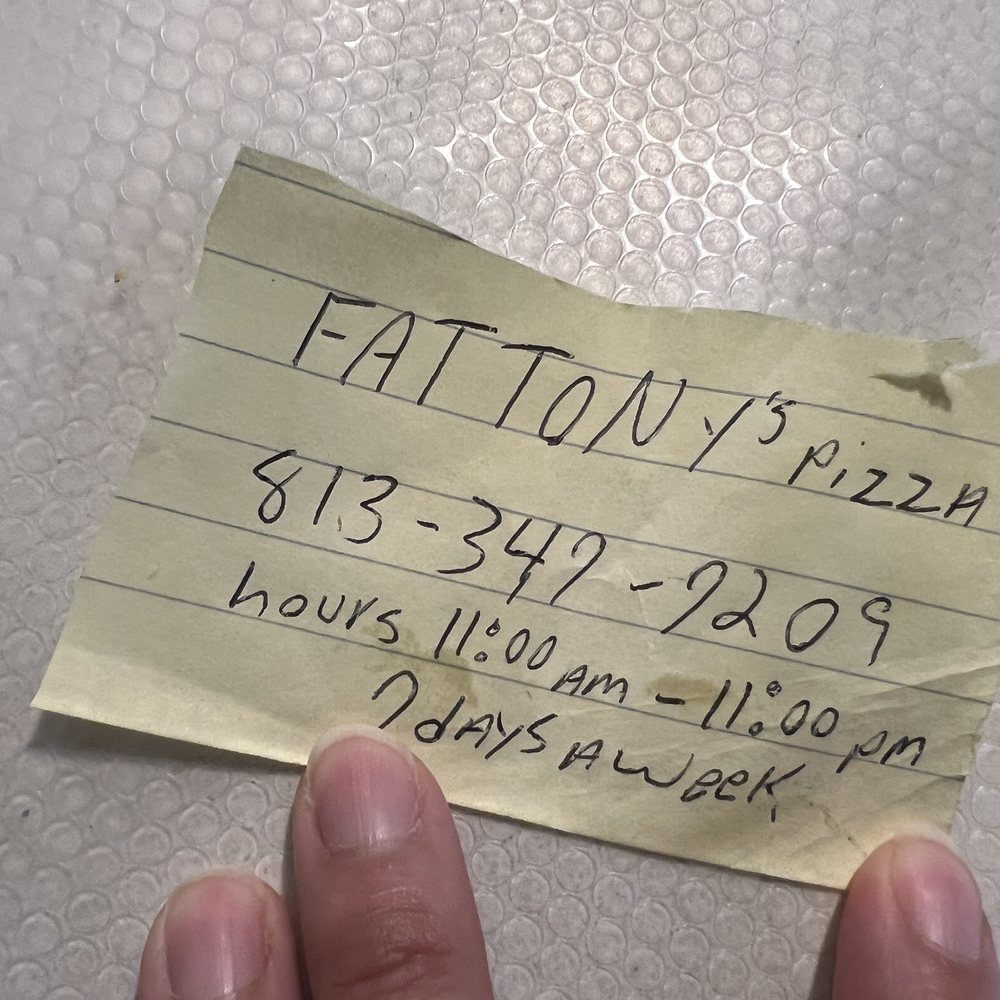 FAT TONY's pizzA
813-347-7209
hours 11:00 AM - 11:00 pm
7 dAYS A week